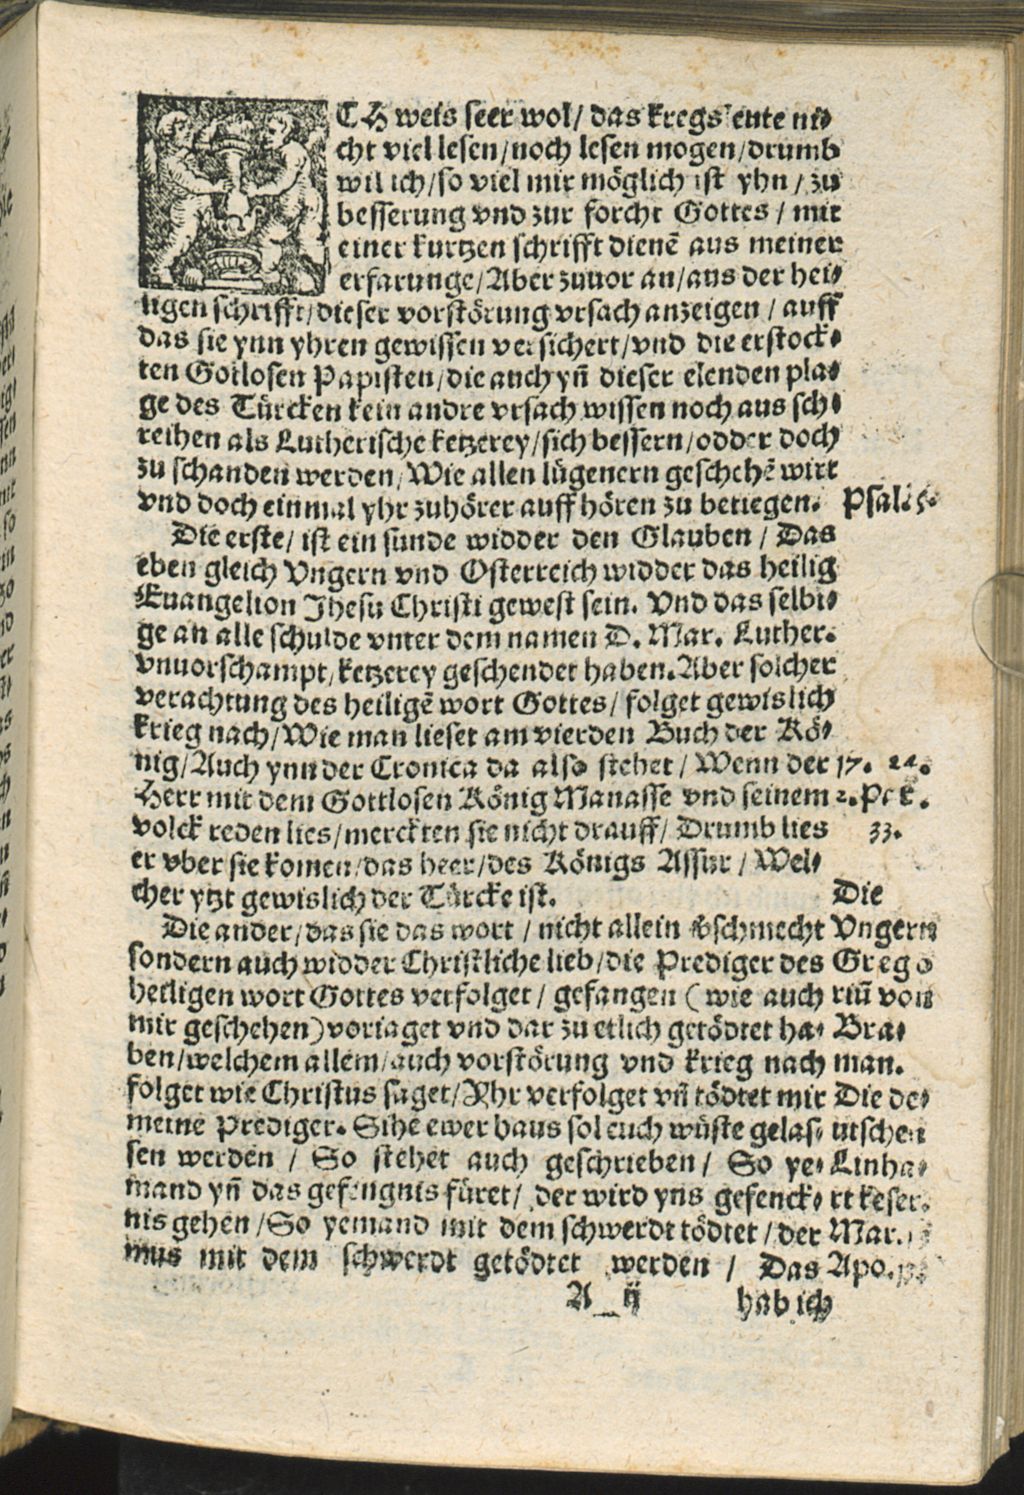 ICH weis seer wol/ das kregs leute ni⸗
cht viel lesen/noch lesen mogen/drumb
wil ich/so viel mir möglich ist yhn/ zu
besserung vnd zur forcht Gottes/ mit
einer kurtzen schrifft dienē aus meiner
erfarunge/Aber zuuor an/aus der hei⸗
ligen schrifft/dieser vorstörung vrsach anzeigen/ auff
das sie ynn yhren gewissen versichert/vnd die erstock⸗
ten Gotlosen Papisten/die auch yñ dieser elenden pla⸗
ge des Türcken kein andre vrsach wissen noch aus sch⸗
reihen als Lutherische ketzerey/sich bessern/odder doch
zu schanden werden/Wie allen lügenern geschehē wirt
vnd doch einmal yhr zuhörer auff hören zu betriegen. Psal. 5.
Die erste/ ist ein sunde widder den Glauben/ Das
eben gleich Vngern vnd Osterreich widder das heilig
Euangelion Jhesu Christi gewest sein. Vnd das selbi⸗
ge an alle schulde vnter dem namen D. Mar. Luther.
vnuorschampt/ketzerey geschendet haben. Aber solcher
verachtung des heiligē wort Gottes/ folget gewislich
krieg nach/Wie man lieset am vierden Buch der Kö⸗
nig/Auch ynn der Cronica da also stehet/ Wenn der 17.
Herr mit dem Gottlosen König Manasse vnd seinem 2.
volck reden lies/merckten sie nicht drauff/ Drumb lies 33.
er vber sie komen/das heer/des Königs Assur/ Wel⸗
cher ytzt gewislich der Türcke ist. Die
Die ander/das sie das wort/ nicht allein vschmecht Vngern
sondern auch widder Christliche lieb/die Prediger des Grego
heiligen wort Gottes verfolget/ gefangen (wie auch riū von
mir geschehen) voriaget vnd dar zu etlich getödtet ha⸗ Bra⸗
ben/welchem allem/auch vorstörung vnd krieg nach man.
folget wie Christus saget/Yhr verfolget vñ tödtet mir Die de⸗
meine Prediger. Sihe ewer haus sol euch wüste gelas⸗ utschen
sen werden/ So stehet auch geschrieben/ So ye⸗ Linha⸗
mand yñ das gefengnis füret/ der wird yns gefenck⸗ rt keser.
nis gehen/So yemand mit dem schwerdt tödtet/der Mar.
mus mit dem schwerdt getödtet werden/ Das Apo. 13.
A ij hab ich